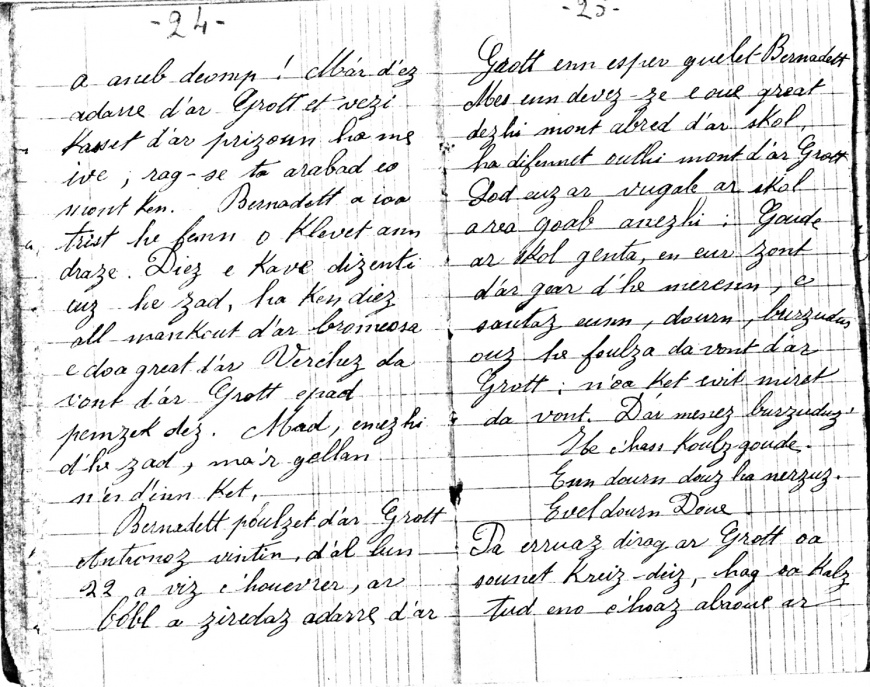 -24-
a aneb deomp ! Mar d'ez
adarre d'ar Grott et vezi
Kasset d'ar prizoun ha me
ive ; rag-se ta arabad eo
mont ken. Bernadett a ioa
trist he fenn o Klevet ann
draze. Diez e Kave dizenti
ouz he zad, ha Ken diez
all mankout d'ar bromeosa
e doa great d'ar Verchez da
vont d'ar Grott epad
pemzek dez. Mad, emezhi
d'he zad, ma'r gellan
n'ei d'inn Ket,
Bernadett poulzet d'ar Grott
Antronoz vintin, d'al lun
22 a viz c'houevrer, ar
bobl a ziredaz adarre d'ar
-25-
Grott enn esper guelet Bernadett
Mes enn devez-ze e oue great
dezhi mont abred d'ar skol,
ha difennet outhi mont d'ar Grott
Lod euz ar vugale ar skol
a rea goab anezhi ; Goude
ar skol genta, en eur zont
d'ar gear d'he meresnn, e
santaz eunn dourn, burzudus
ouz he foulza da vont d'ar
Grott ; n'oa Ket evit miret
da vont. D'ar menez burzuduz,
He c'hass Koulz goude.
Eun dourn douz ha nerzuz.
Evel dourn Doue.
Pa erruaz dirag ar Grott oa
sounet Kreiz-deiz, hag oa Kalz
tud eno c'hoaz abaoue ar